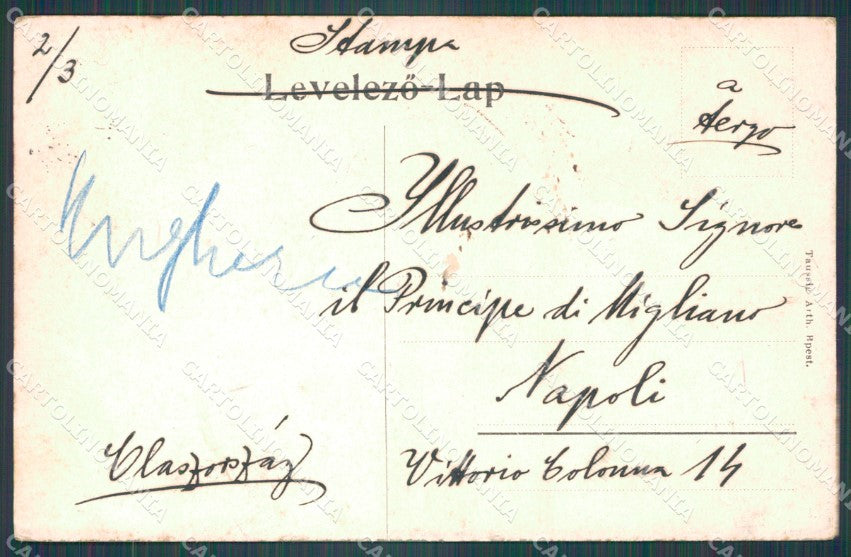 2/3
Stampa
Levelező-Lap
a
tergo
Ungheria
Illustrissimo Signore
il Principe di Migliano
Napoli
Olaszország
Vittorio Colonna 14
Taussig Arth. Bpest.
CARTOLINOMANIA